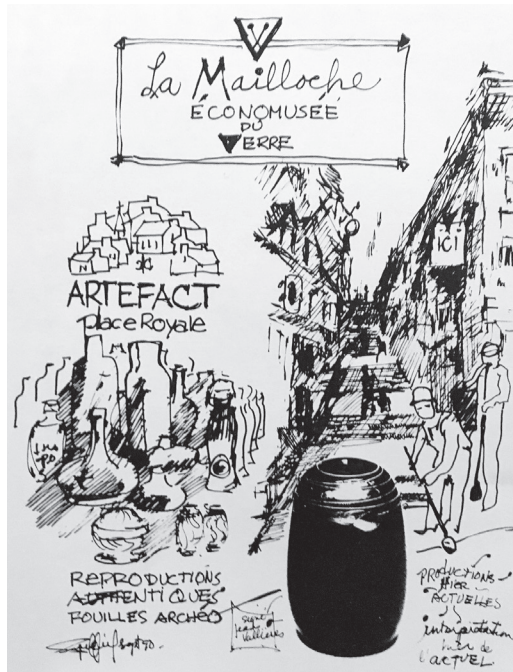 La Mailloche
ÉCONOMUSÉE
DU
VERRE
ICI
ARTEFACT
place Royale
REPRODUCTIONS
AUTHENTIQUES
FOUILLES ARCHÉO
signé
Jean
Vallières
PRODUCTIONS
HIER -
ACTUELLES
interprétation
hier de
l'ACTUEL